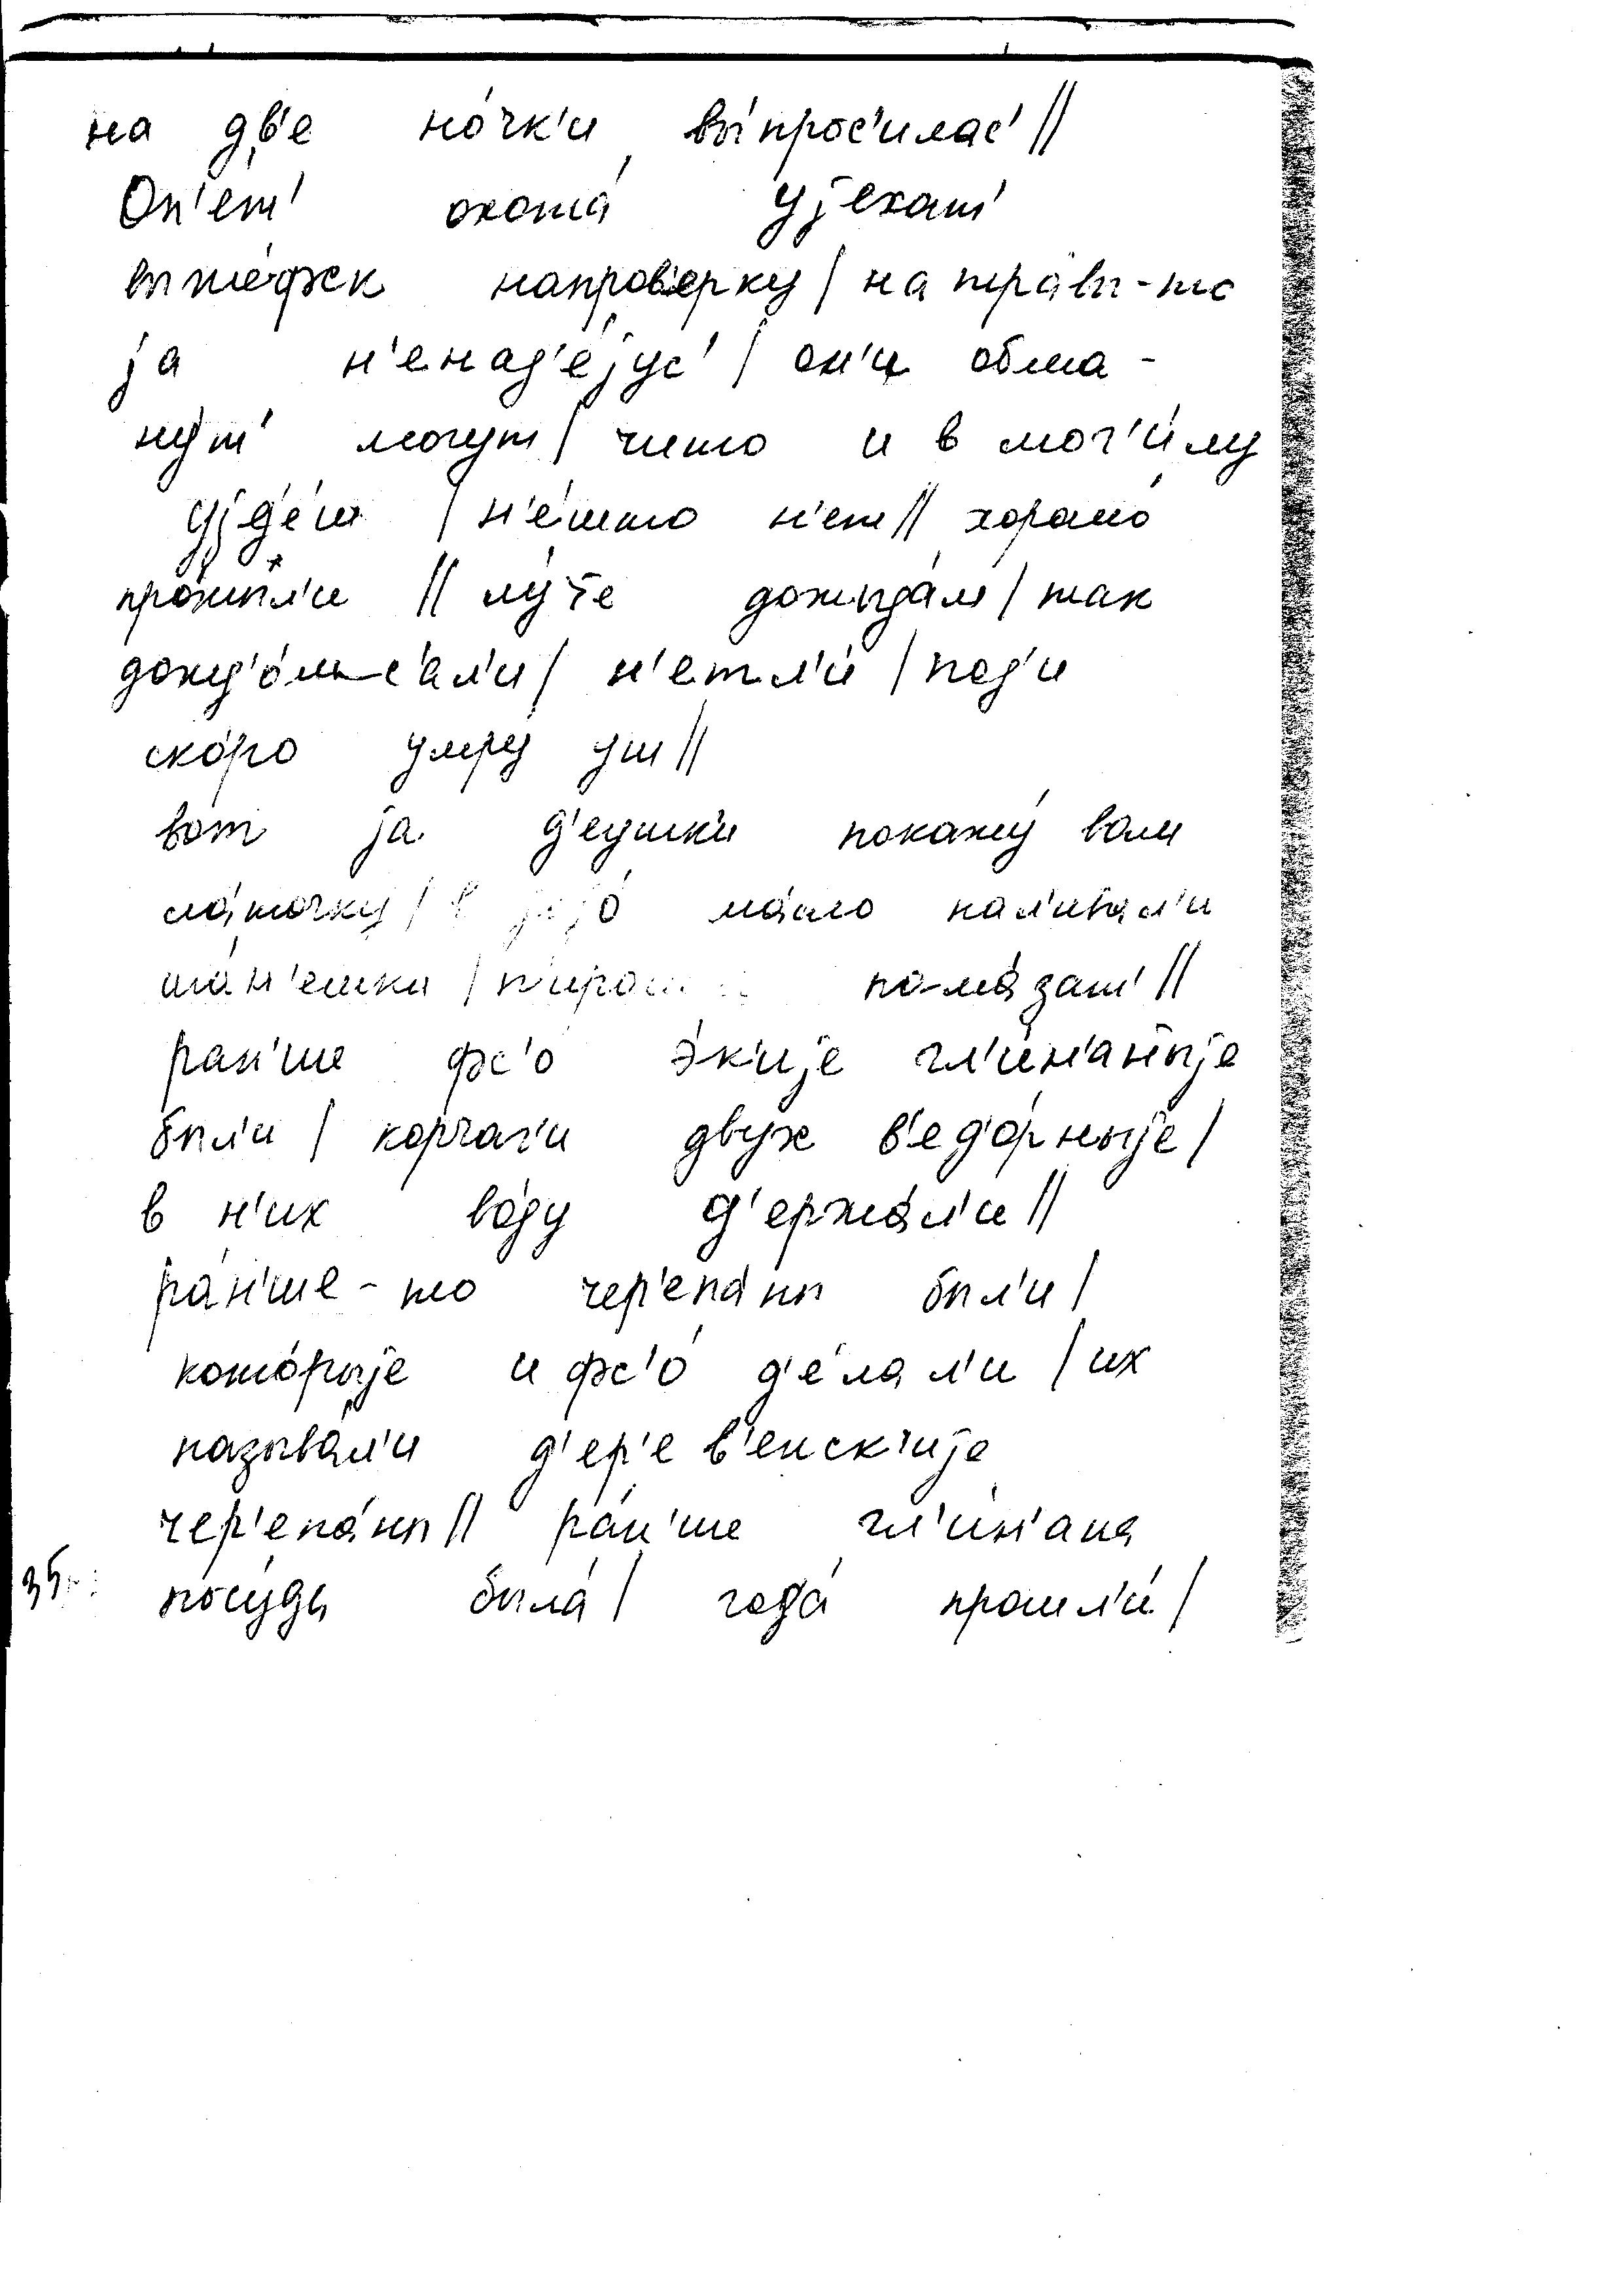 на дв'е но́чк'и вы́прос'илас' ||
Оп'е́т' охота́ уjехат'
на пров'ерку | на тра́вы-то
jа н'енад'е́jус' | он'и обма-
ну́т' могут | чито и в мог'и́лу
уjд'е́ш | н'е́што н'ет || хорашо́
про́жыл'и || лу́че дожыда́л'и | так
н'етл'и́ | под'и
ско́ро умру́ уш ||
вот jа д'еушк'и покажу́ вам
ла́точку | в jеjо́ ма́сло нал'ивал'и
ша́н'ешки | пома́зат' ||
ран'ше фс'о э́к'иjе гл'и́н'аныjе
был'и | корчаг'и двух в'ед'о́рныjе |
в н'их во́ду д'ержа́л'и ||
ра́н'ше-то чер'епа́ны был'и |
кото́рыjе и фс'о́ д'е́лал'и | их
называ́л'и д'ер'ев'енск'иjе
чер'епа́ны || ра́н'ше гл'и́н'ана
посу́да была́ | года́ прошл'и́ |